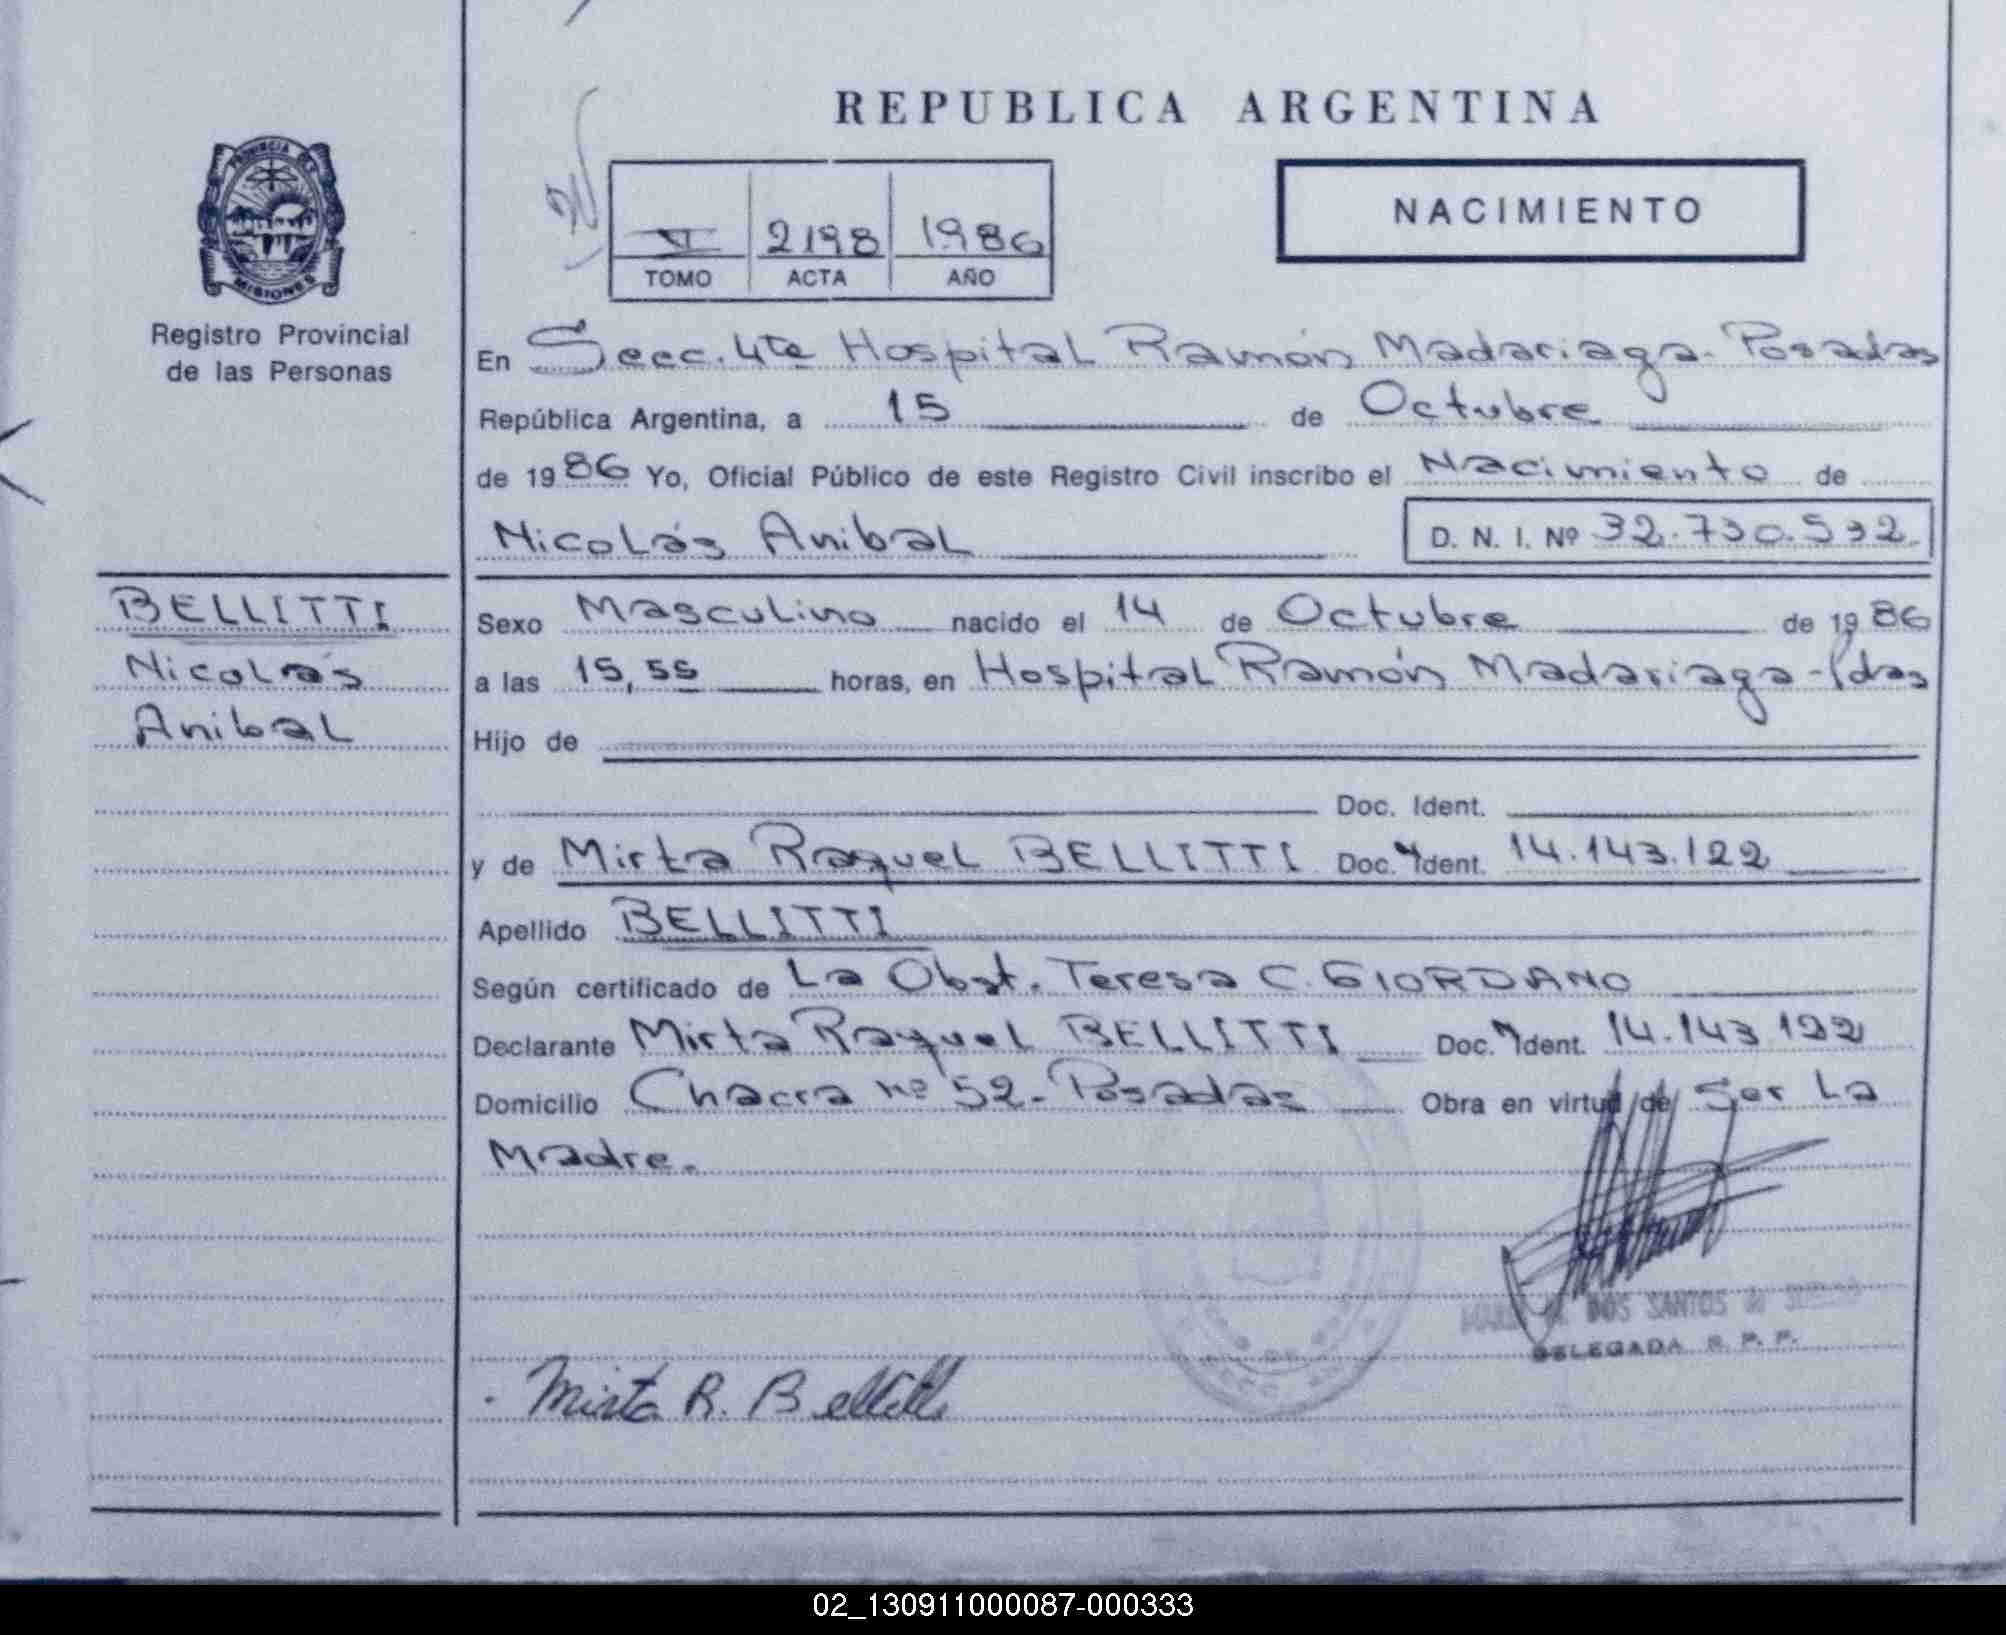 REPUBLICA ARGENTINA
PROVINCIA DE
MISIONES
Registro Provincial
de las Personas
VI 2198 1986
TOMO ACTA AÑO
NACIMIENTO
En Secc. 4ta Hospital Ramón Madariaga - Posadas
República Argentina, a 15 de Octubre
de 1986 Yo, Oficial Público de este Registro Civil inscribo el Nacimiento de
Nicolás Anibal D. N. I. Nº 32.730.532
BELLITTI
Nicolás
Anibal
Sexo Masculino nacido el 14 de Octubre de 1986
a las 15,55 horas, en Hospital Ramón Madariaga - Pdas
Hijo de
Doc. Ident.
y de Mirta Raquel BELLITTI Doc. Ident. 14.143.122
Apellido BELLITTI
Según certificado de La Obst. Teresa C. GIORDANO
Declarante Mirta Raquel BELLITTI Doc. Ident. 14.143.122
Domicilio Chacra nº 52 - Posadas Obra en virtud de Ser La
Madre.
DOS SANTOS de
DELEGADA R. P. P.
Mirta R. Bellitti
02_130911000087-000333